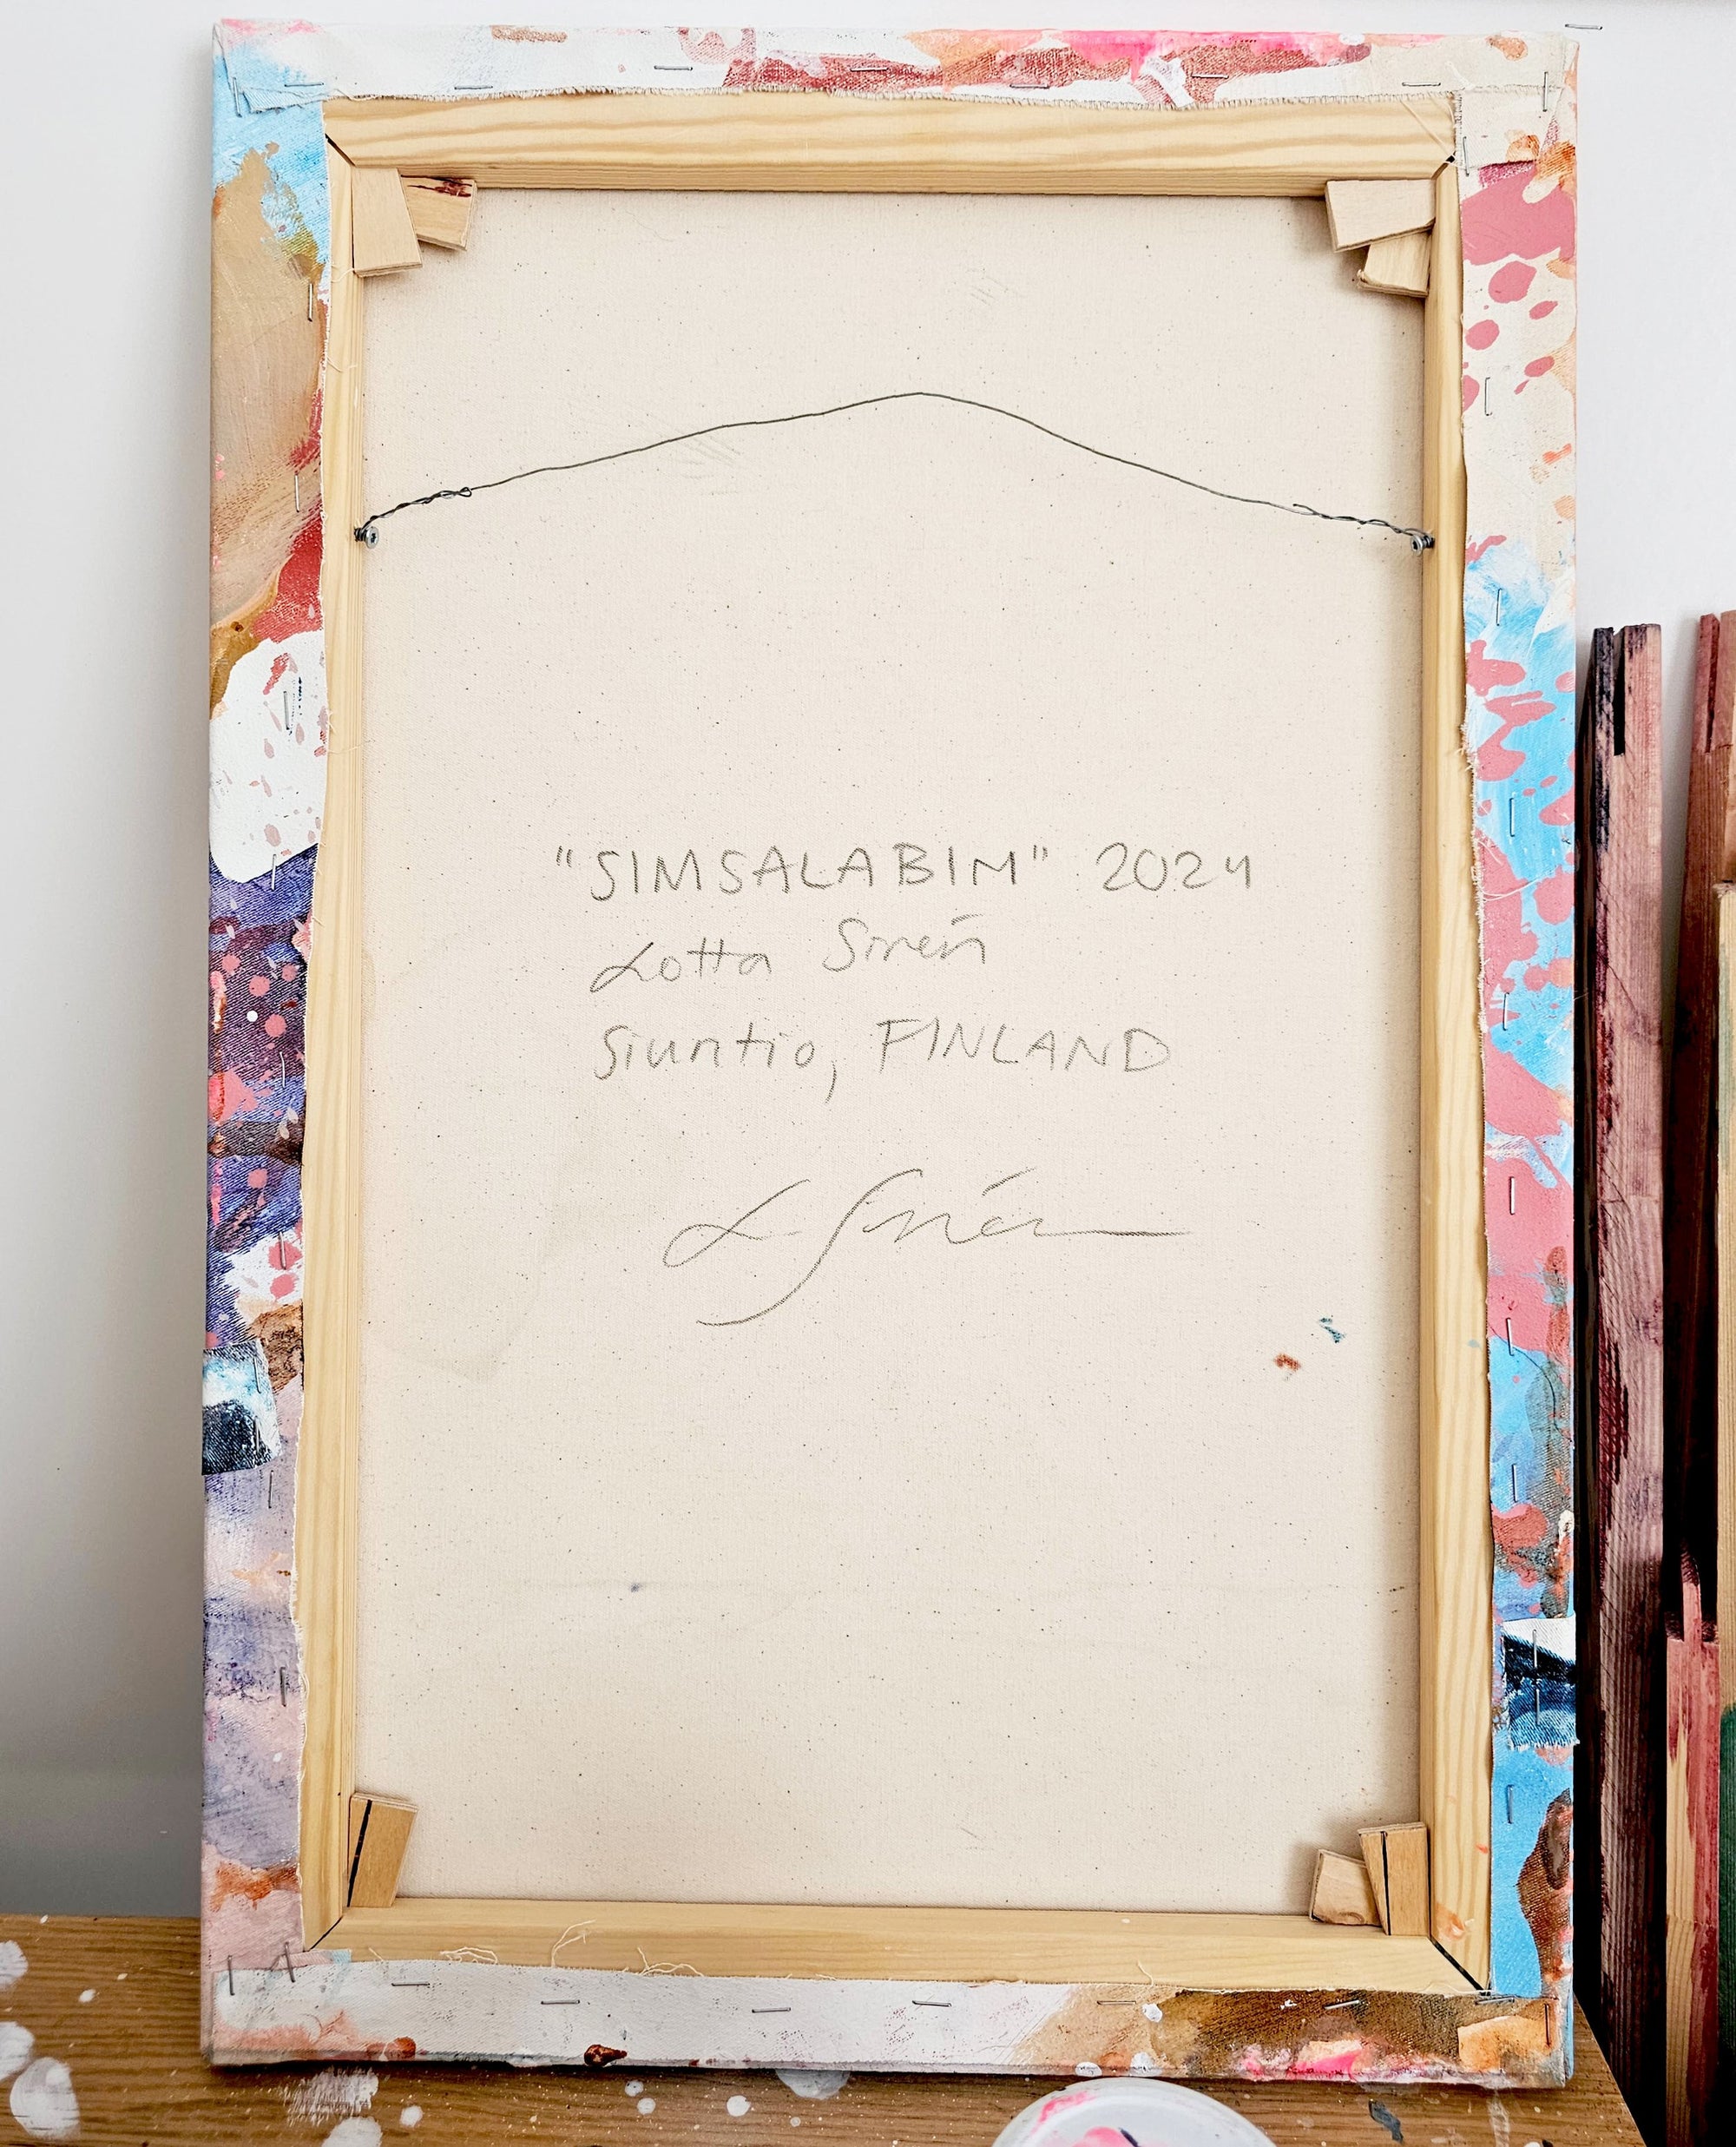 "SIMSALABIM" 2024
Lotta Sirén
Siuntio, FINLAND
L Sirén